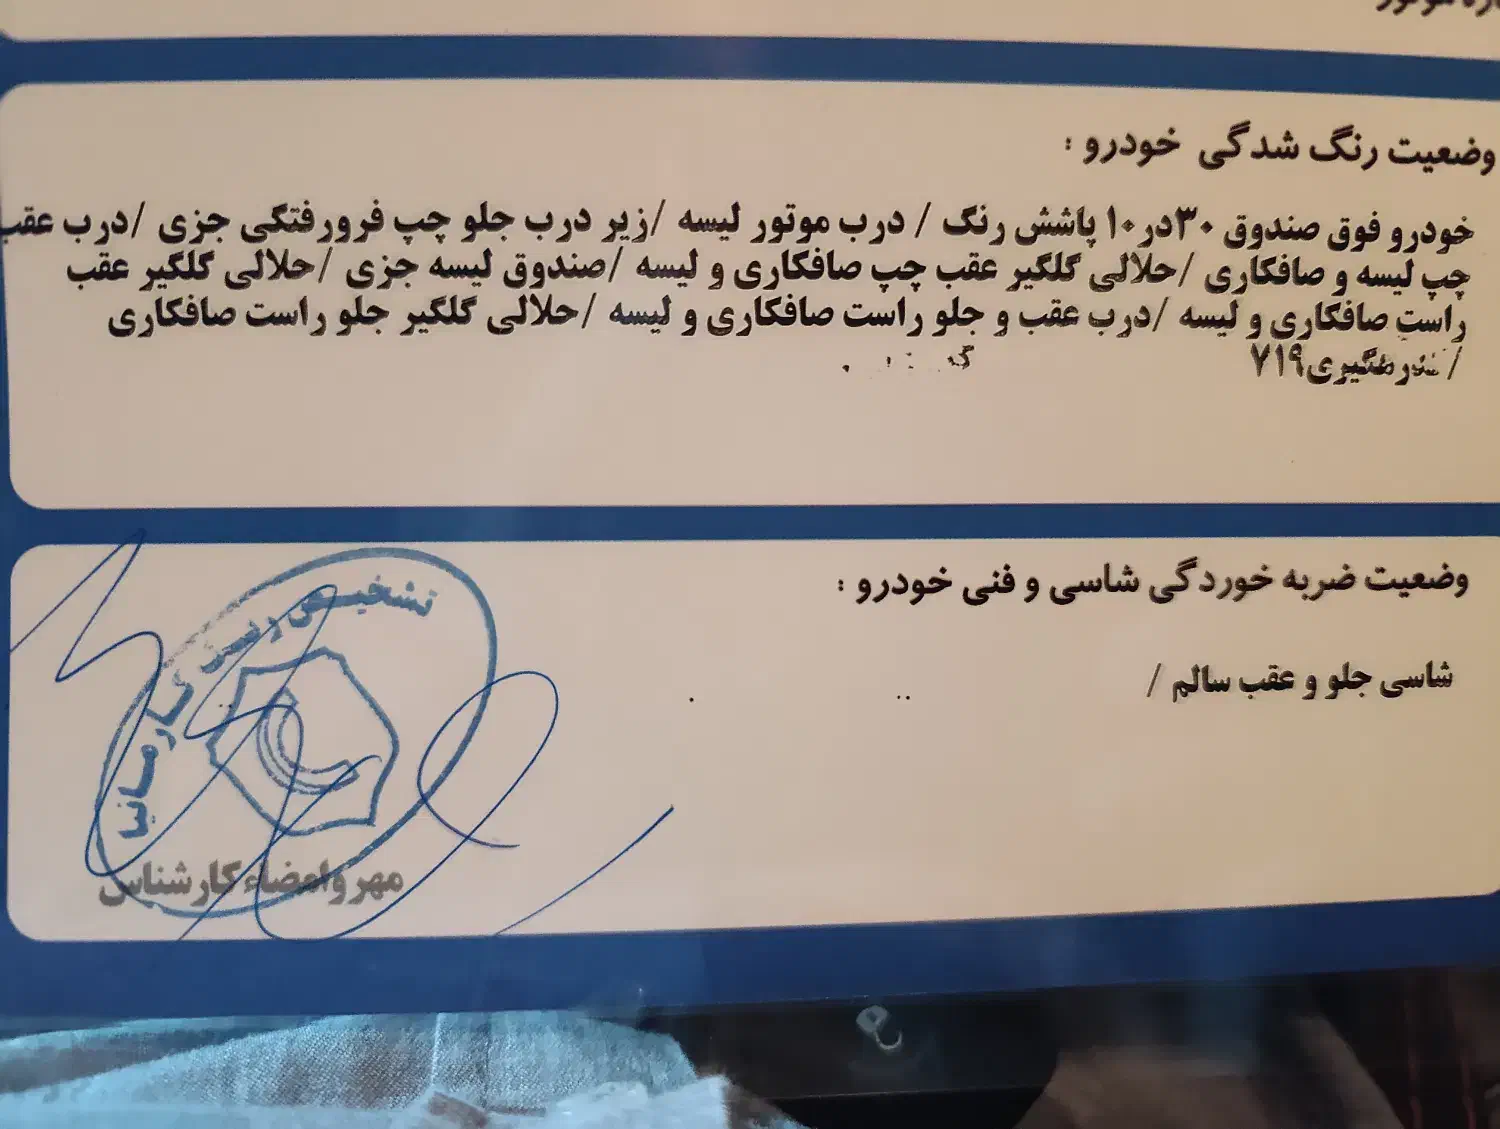 وضعیت رنگ شدگی خودرو :
خودرو فوق صندوق ۳۰در۱۰ پاشش رنگ / درب موتور لیسه /زیر درب جلو چپ فرورفتگی جزی /درب عقب
چپ لیسه و صافکاری /حلالی گلگیر عقب چپ صافکاری و لیسه /صندوق لیسه جزی /حلالی گلگیر عقب
راست صافکاری و لیسه /درب عقب و جلو راست صافکاری و لیسه /حلالی گلگیر جلو راست صافکاری
/ ۷۱۹
وضعیت ضربه خوردگی شاسی و فنی خودرو :
شاسی جلو و عقب سالم /
تشخیص رنگ کارمانیا
مهر و امضاء کارشناس